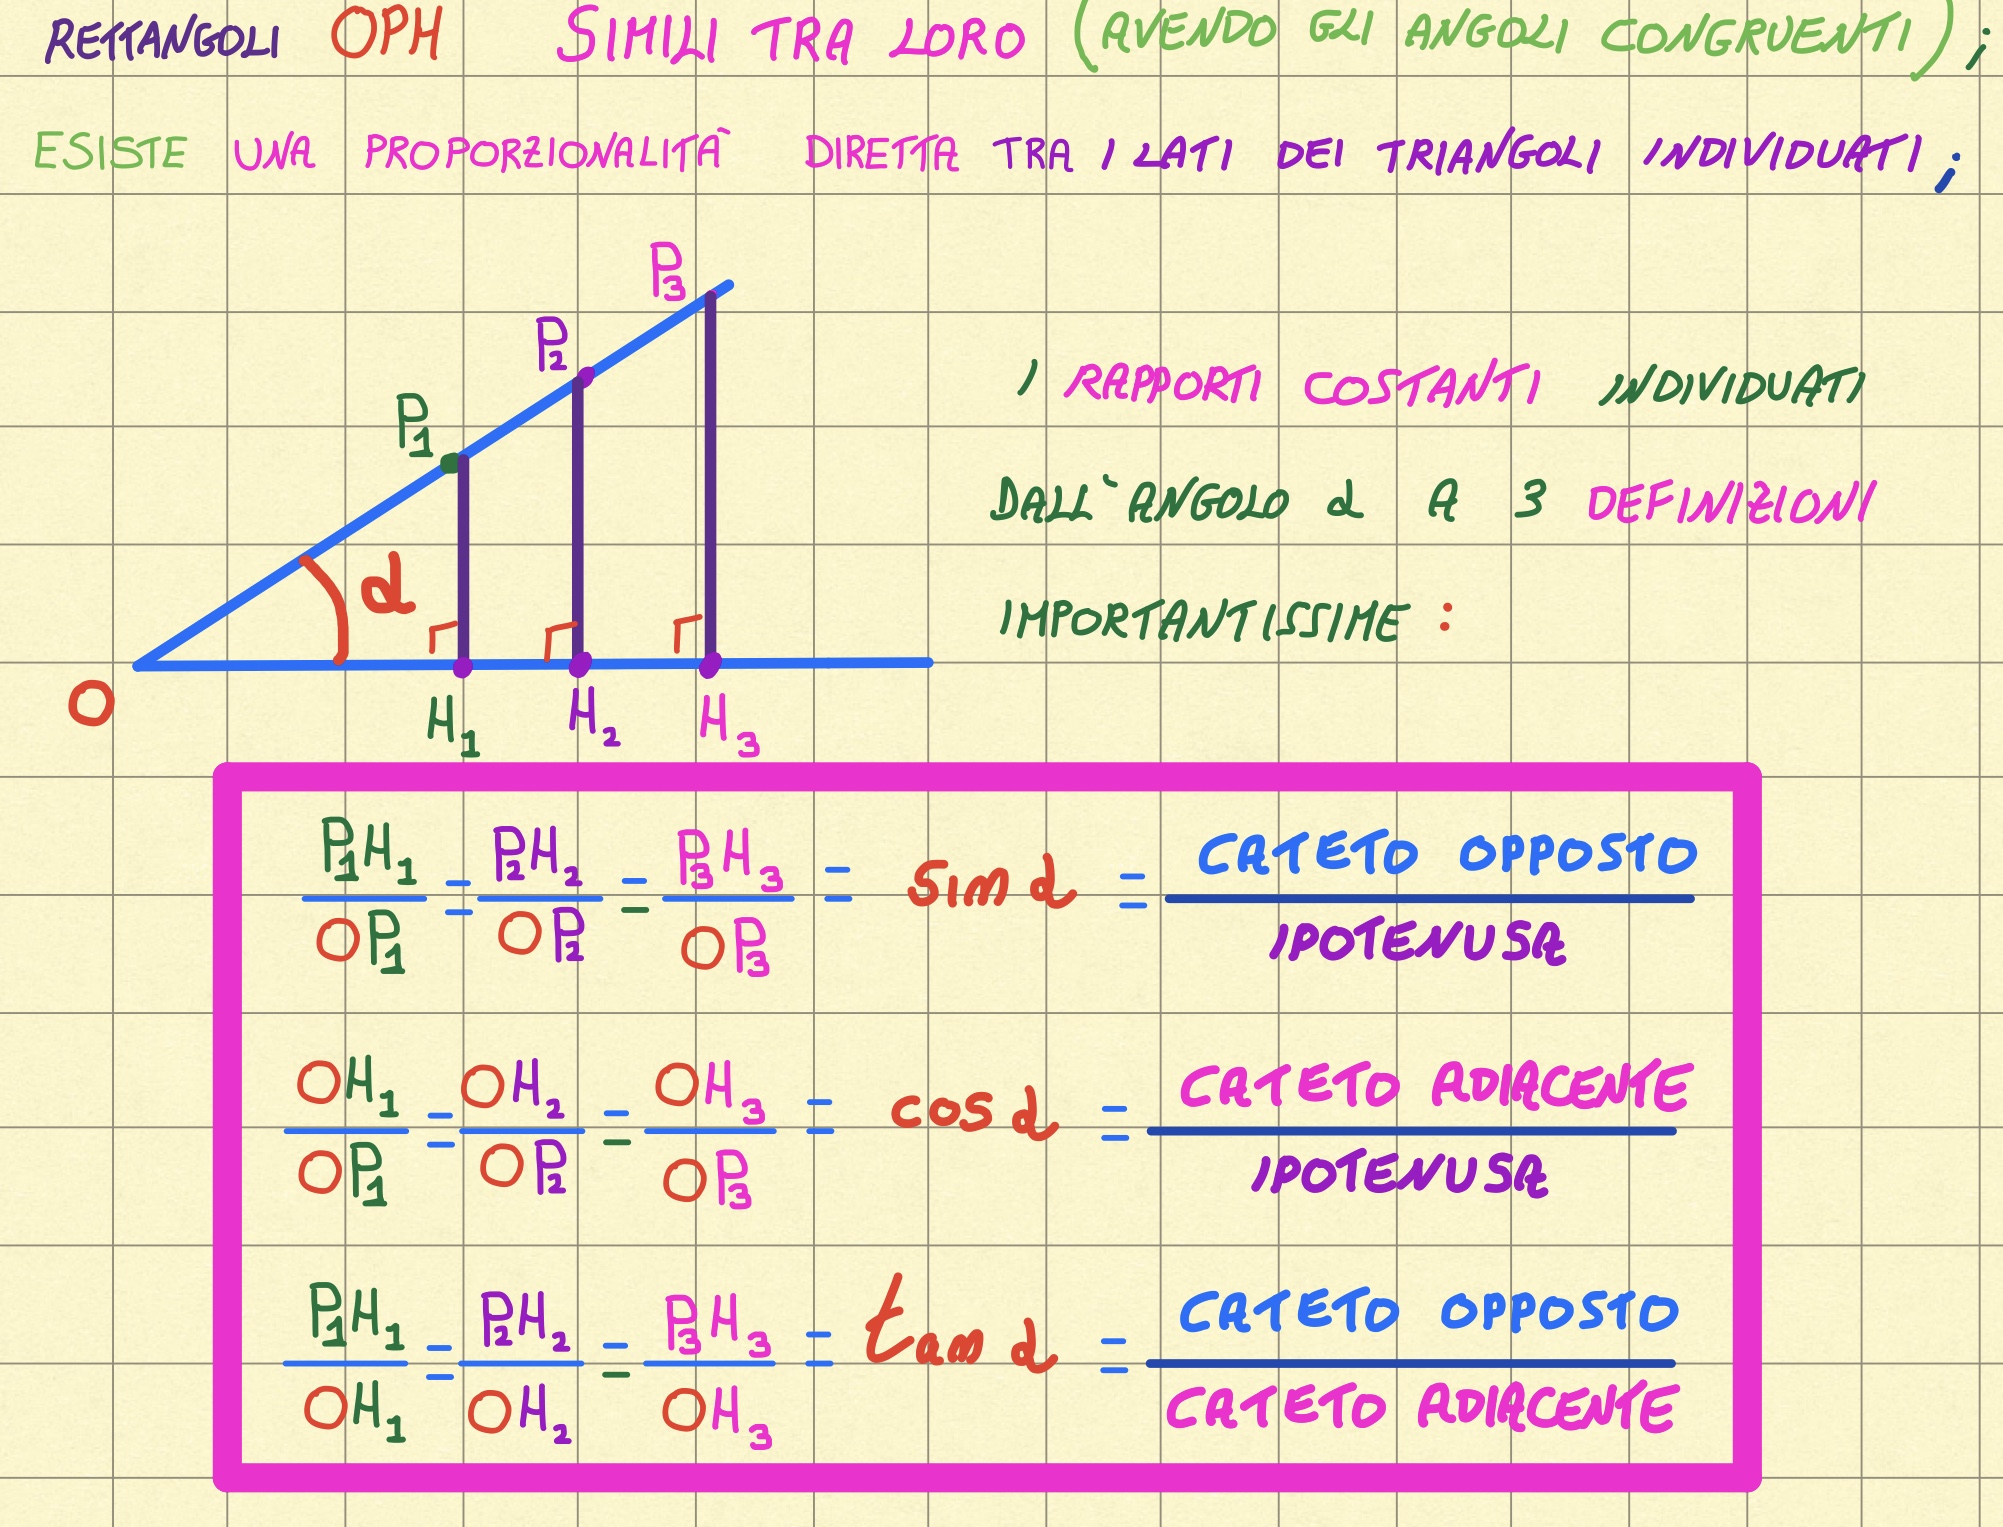 RETTANGOLI OPH SIMILI TRA LORO (AVENDO GLI ANGOLI CONGRUENTI);
ESISTE UNA PROPORZIONALITÀ DIRETTA TRA I LATI DEI TRIANGOLI INDIVIDUATI;
P3
P2
P1
I RAPPORTI COSTANTI INDIVIDUATI
DALL'ANGOLO α A 3 DEFINIZIONI
α
IMPORTANTISSIME :
O
H1 H2 H3
P1H1/OP1 = P2H2/OP2 = P3H3/OP3 = sin α = CATETO OPPOSTO/IPOTENUSA
OH1/OP1 = OH2/OP2 = OH3/OP3 = cos α = CATETO ADIACENTE/IPOTENUSA
P1H1/OH1 = P2H2/OH2 = P3H3/OH3 = tan α = CATETO OPPOSTO/CATETO ADIACENTE